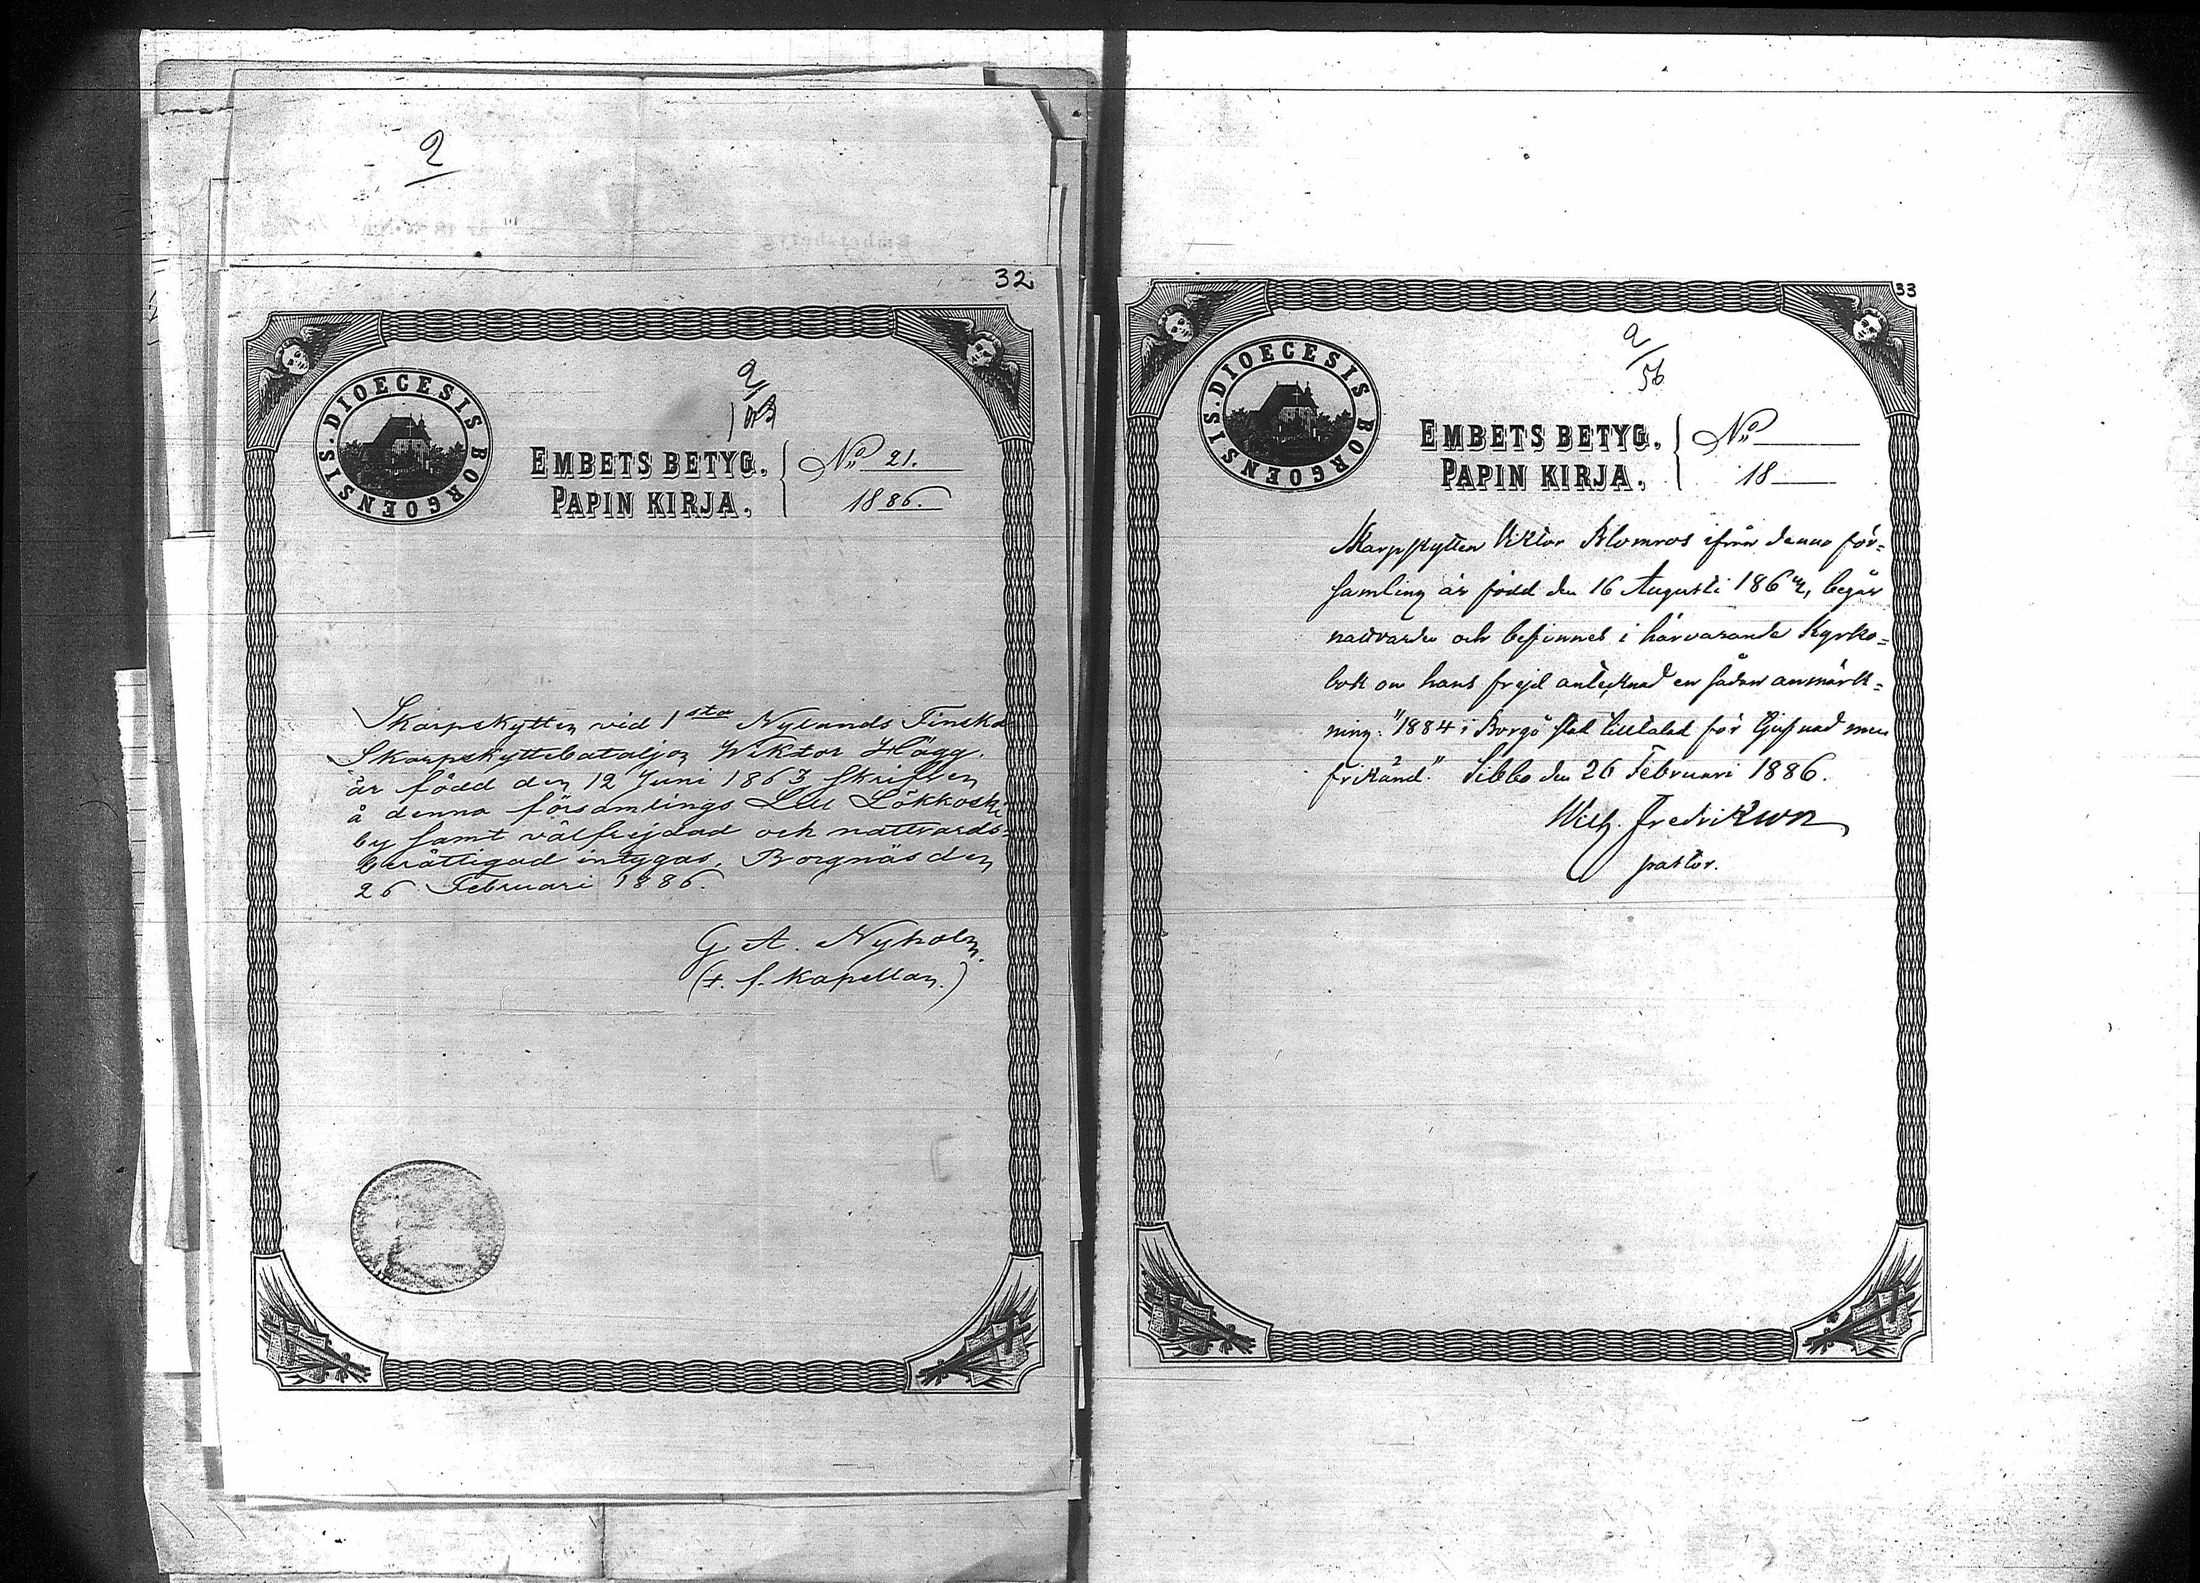 2
32
DIOECESIS BORGOENSIS.
EMBETS BETYG.
PAPIN KIRJA.
No 21.
1886.
Skarpskytten vid 1sta Nylands Finska
Skarpskyttebataljon Wiktor Hägg.
är född den 12 Juni 1863 skrifven
å denna församlings Lill Lökkoski
by samt välfrejdad och nattvards-
berättigad intygas. Borgnäs den
26 Februari 1886.
G. A. Nyholm.
(t. f. kapellan.)
33
2/56
DIOECESIS BORGOENSIS.
EMBETS BETYG.
PAPIN KIRJA.
No
18
Skarpskytten Viktor Blomros ifrån denna för-
samling är född den 16 Augusti 1862, begår
nattvarden och befinnes i härvarande Kyrko-
bok om hans frejd antecknad en sådan anmärk-
ning: "1884 i Borgå stad tilltalad för tjufnad men
frikänd." Sibbo den 26 Februari 1886.
Wilh. Fredrikson
pastor.